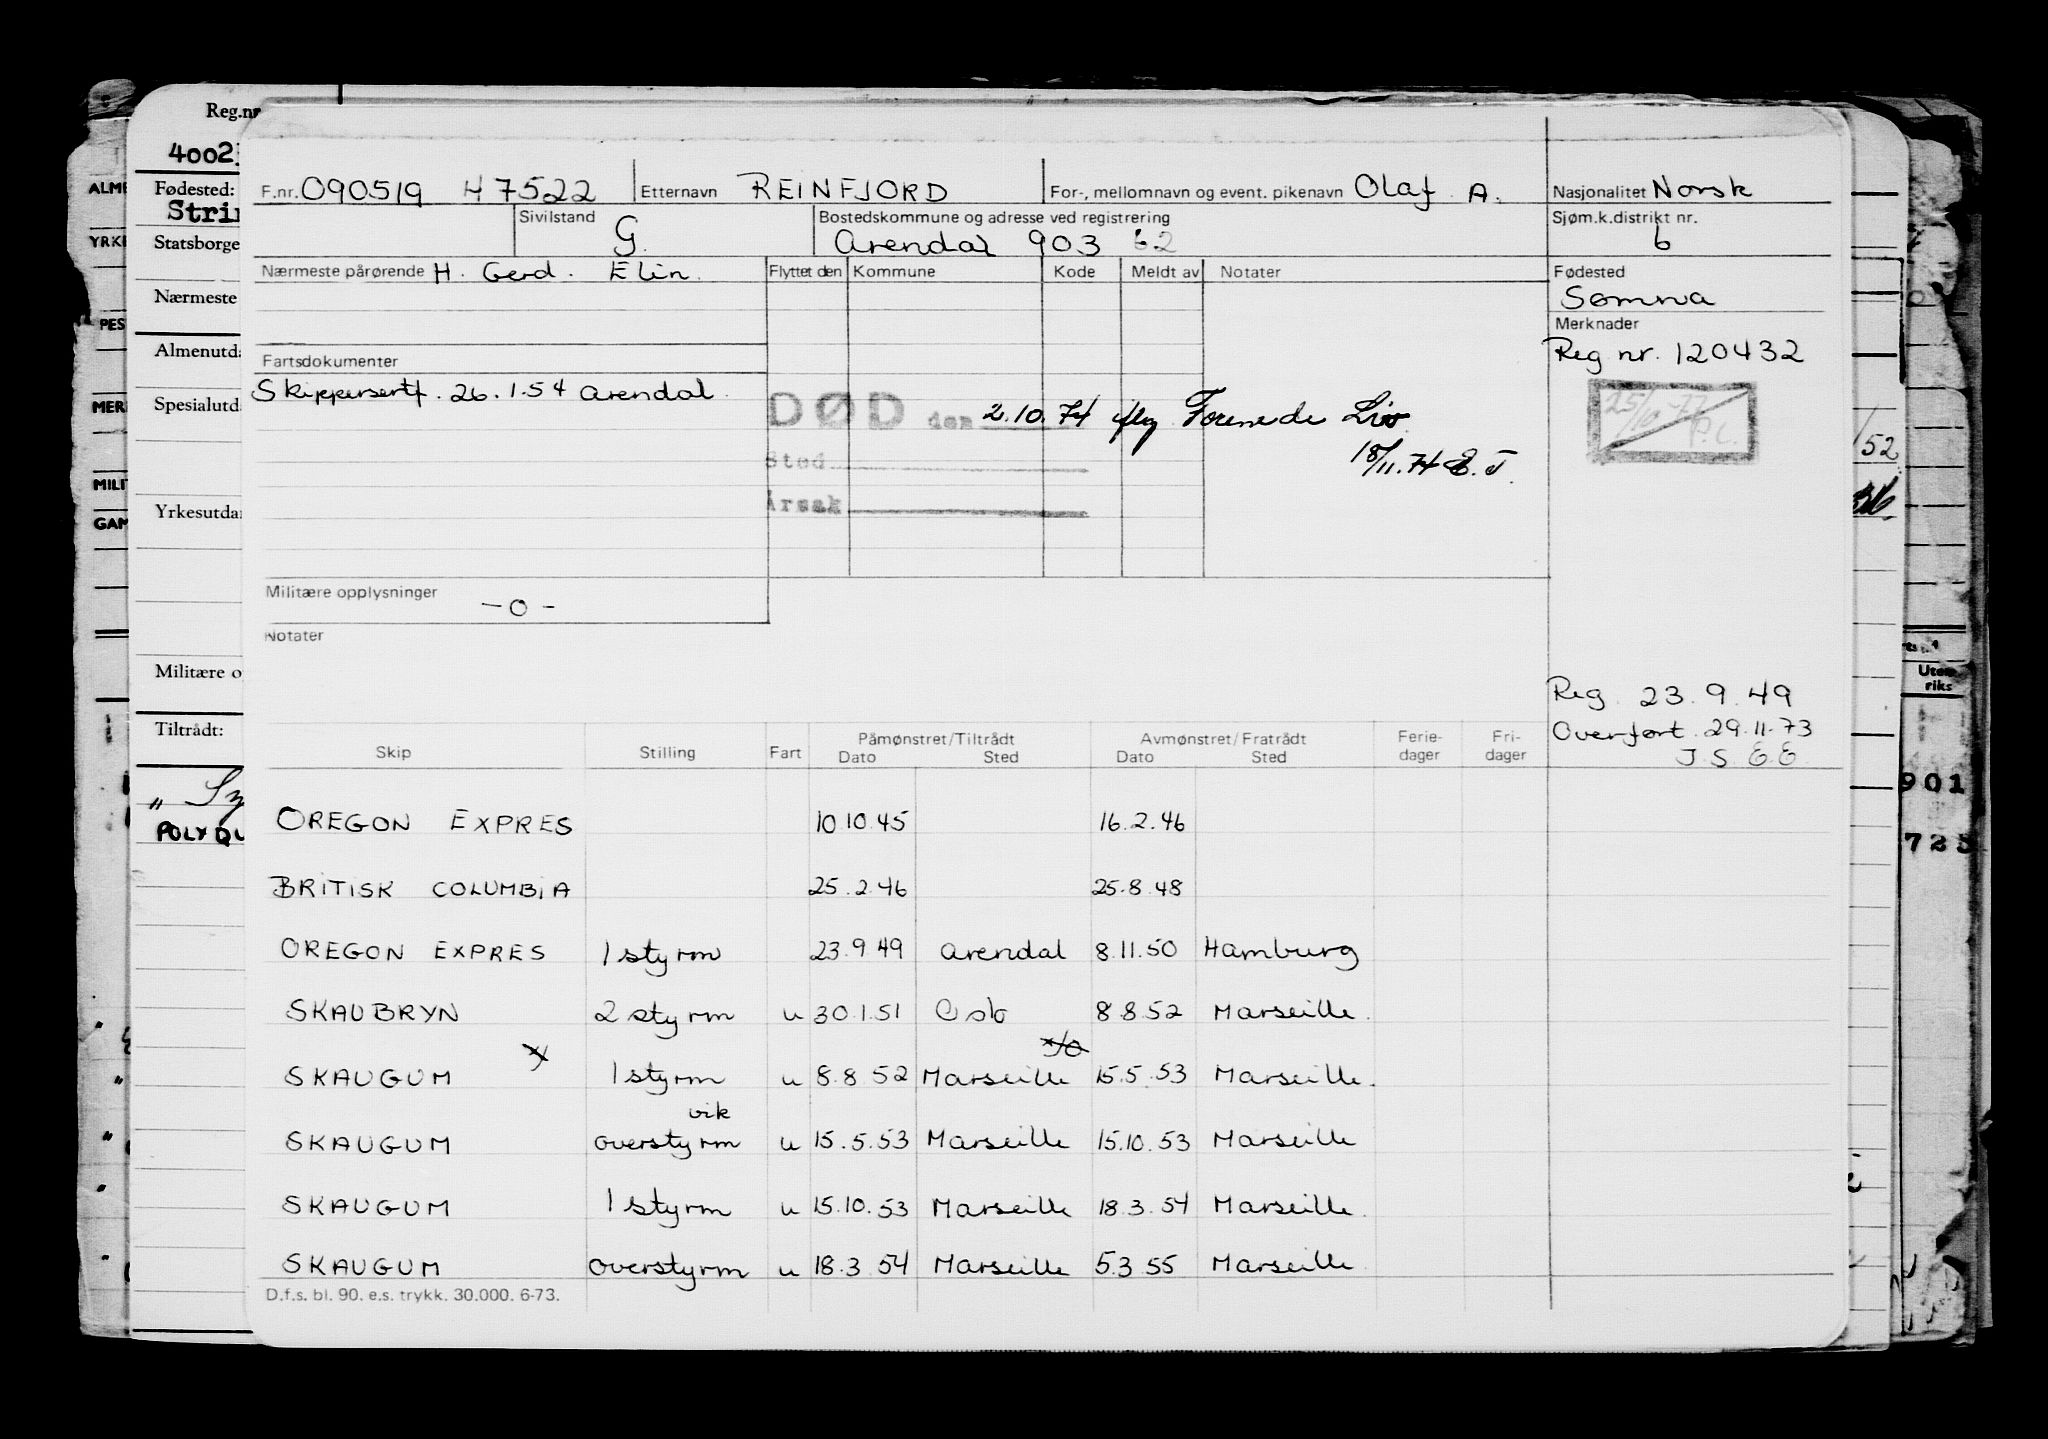 Reg.nr
4002
Fødested:
Strin
Statsborge
Nærmeste
Almenutda
Spesialutda
Yrkesutdan
Militære o
Tiltrådt:
POLYDU
ALME
YRKE
PES
MERI
MILIT
GAM
F.nr. 090519 47522 Etternavn REINFJORD For-, mellomnavn og event. pikenavn Olaf A. Nasjonalitet Norsk
Sivilstand G. Bostedskommune og adresse ved registrering Sjøm.k.distrikt nr.
Arendal 903 62 6
Nærmeste pårørende H. Gerd. Elin. Flyttet den Kommune Kode Meldt av Notater Fødested
Sømna
Merknader
Reg nr. 120432
Fartsdokumenter
Skippersertf. 26.1.54 Arendal
DØD den 2.10.74 flg Forenede Liv.
18/11.74 E.J.
Sted
Årsak
25/10-77 P.L.
Militære opplysninger -0-
Notater
Reg. 23.9.49
Overført. 29.11.73
J.S. E.E.
Skip Stilling Fart Påmønstret/Tiltrådt Avmønstret/Fratrådt Ferie- Fri-
Dato Sted Dato Sted dager dager
OREGON EXPRES 10.10.45 16.2.46
BRITISK COLUMBIA 25.2.46 25.8.48
OREGON EXPRES 1 styrm 23.9.49 Arendal 8.11.50 Hamburg
SKAUBRYN 2 styrm u 30.1.51 Oslo 8.8.52 Marseille.
SKAUGUM 1 styrm u 8.8.52 Marseille 15.5.53 Marseille.
vik
SKAUGUM overstyrm u 15.5.53 Marseille 15.10.53 Marseille
SKAUGUM 1 styrm u 15.10.53 Marseille 18.3.54 Marseille.
SKAUGUM overstyrm u 18.3.54 Marseille 5.3.55 Marseille
D.f.s. bl. 90. e.s. trykk. 30.000. 6-73.
/52
Uten-
riks
901
725